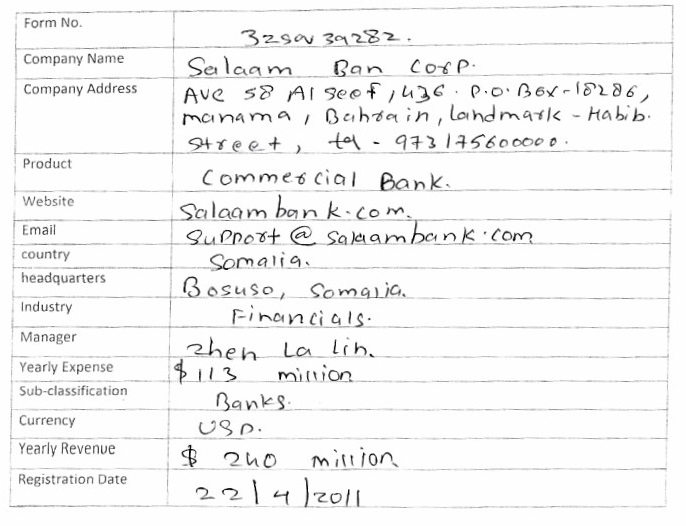 Form No.
32sav39282.
Company Name
Salaam Ban Corp.
Company Address
Ave 58 Al seef, 436. P.O. Box-18286,
manama, Bahrain, landmark - Habib.
Street, tel - 973 175600000.
Product
Commercial Bank.
Website
Salaambank.com.
Email
Support@salaambank.com
country
Somalia.
headquarters
Bosuso, Somalia.
Industry
Financials.
Manager
Zhen La Lin.
Yearly Expense
$113 million
Sub-classification
Banks.
Currency
USD.
Yearly Revenue
$ 240 million
Registration Date
22/4/2011